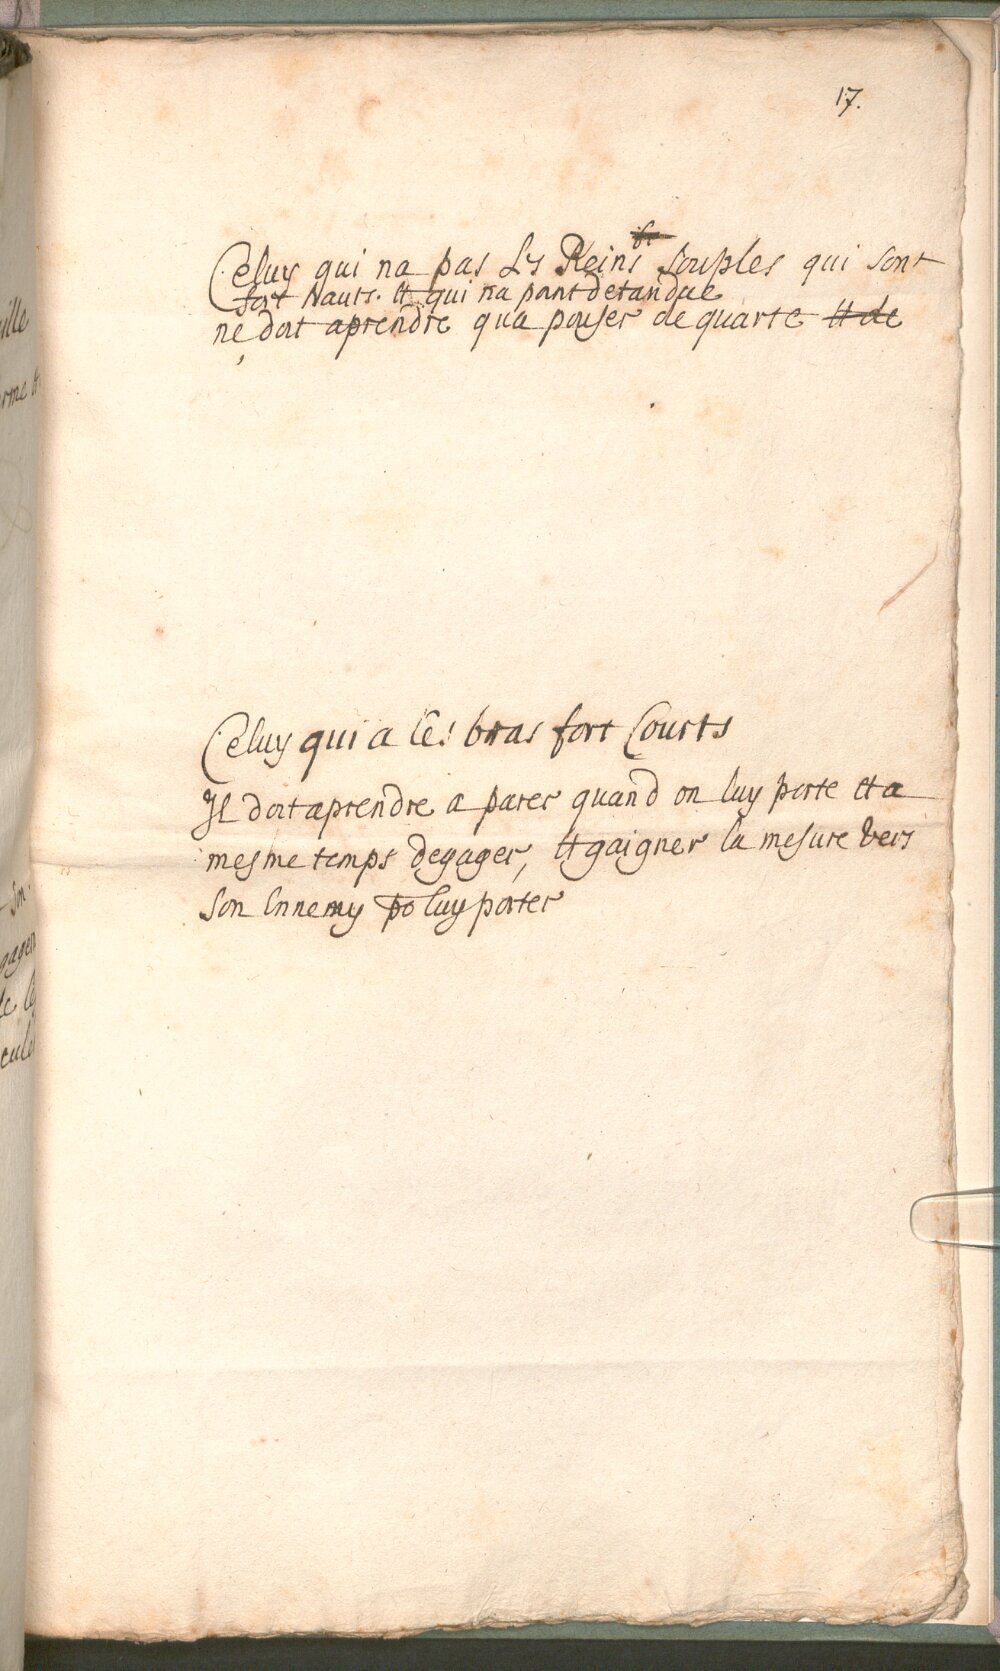 17.
Celuy qui na pas Les Reins souples qui sont
fort hauts. Et qui na point detandue
ne doit aprendre qua pousser de quarte Et de
Celuy qui a les bras fort Courts
Il doit aprendre a parer quand on luy porte et a
mesme temps degager, Et gaigner la mesure vers
son Ennemy po luy porter
ville
rme &
son
gager
de